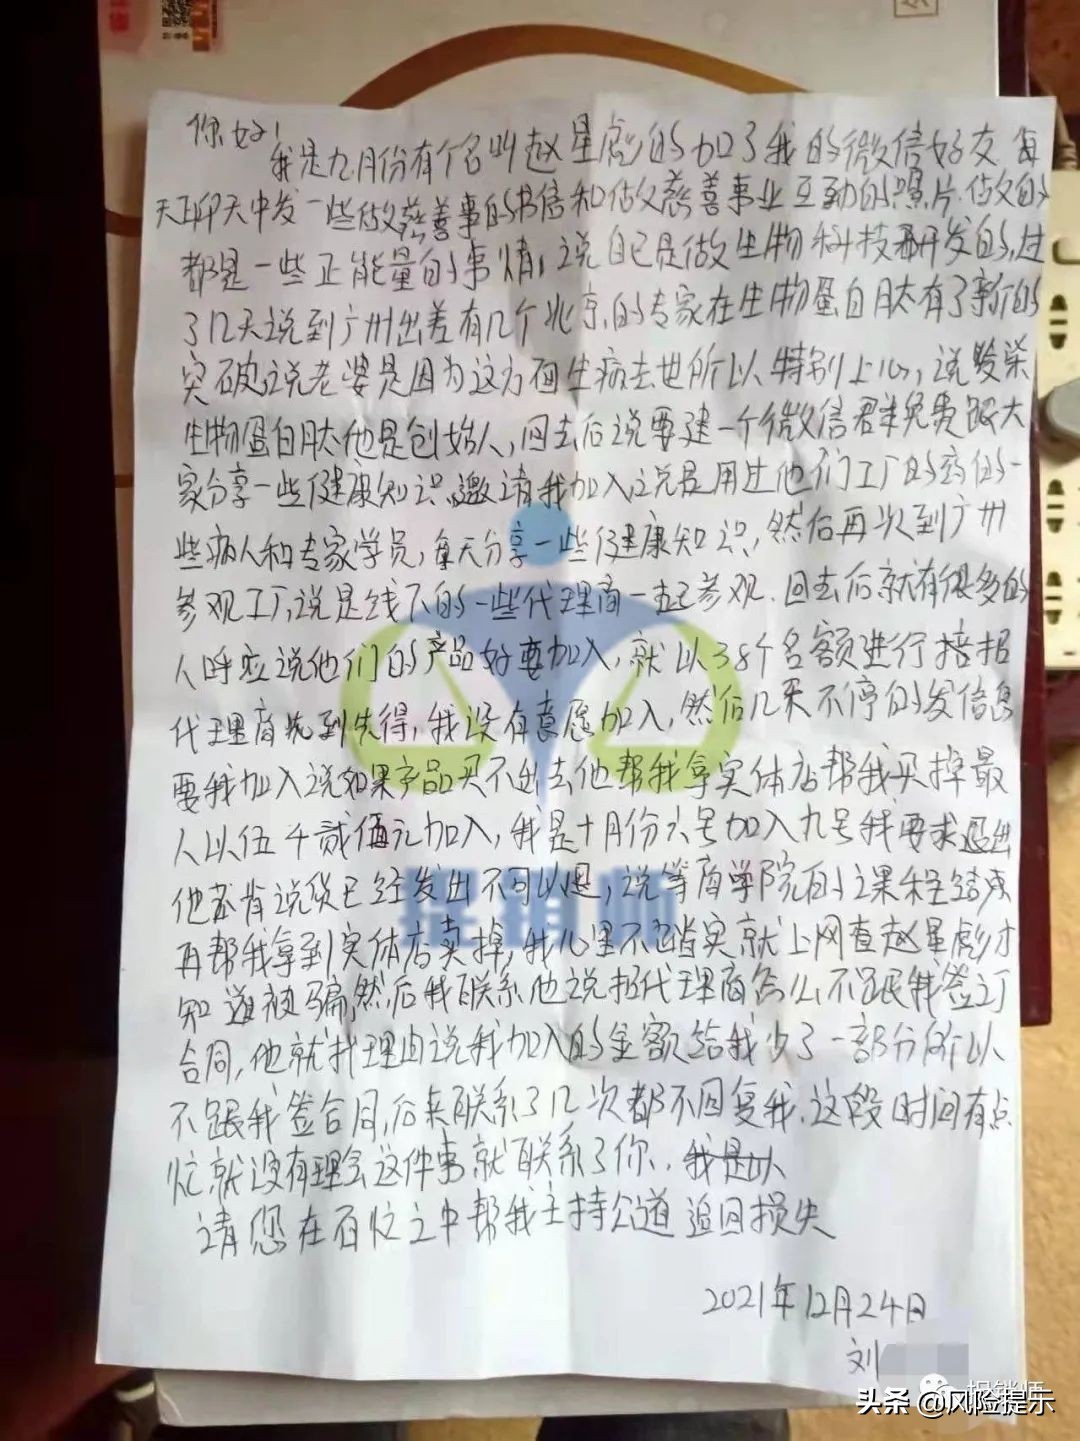 你好!
我是九月份有个名叫赵星彪的加了我的微信好友每
天聊天中发一些做慈善事的书信和做慈善事业互动的照片.做的
都是一些正能量的事情,说自己是做生物科技研开发的,过
了几天说到广州出差有几个北京的专家在生物蛋白肽有了新的
突破,说老婆是因为这方面生病去世所以特别上心,说发荣
生物蛋白肽他是创始人,回去后说要建一个微信群免费跟大
家分享一些健康知识,邀请我加入,说是用过他们工厂的药的一
些病人和专家学员,每天分享一些健康知识,然后再次到广州
参观工厂,说是线下的一些代理商一起参观.回去后就有很多的
人呼应说他们的产品好要加入,就以38个名额进行招报
代理商先到先得,我没有意愿加入,然后几天不停的发信息
要我加入说如果产品买不出去他帮我拿实体店帮我买掉最
人以伍千贰佰元加入,我是十月份六号加入九号我要求退出
他不肯说货已经发出不可以退,说等商学院的课程结束
再帮我拿到实体店卖掉,我心里不踏实就上网查赵星彪才
知道被骗,然后我联系他说报代理商怎么不跟我签订
合同,他就找理由说我加入的金额给我少了一部分所以
不跟我签合同,后来联系了几次都不回复我.这段时间有点
忙就没有理会这件事就联系了你.我是以
请您在百忙之中帮我主持公道追回损失
2021年12月24日
刘
提销师
报销师
头条@风险提示